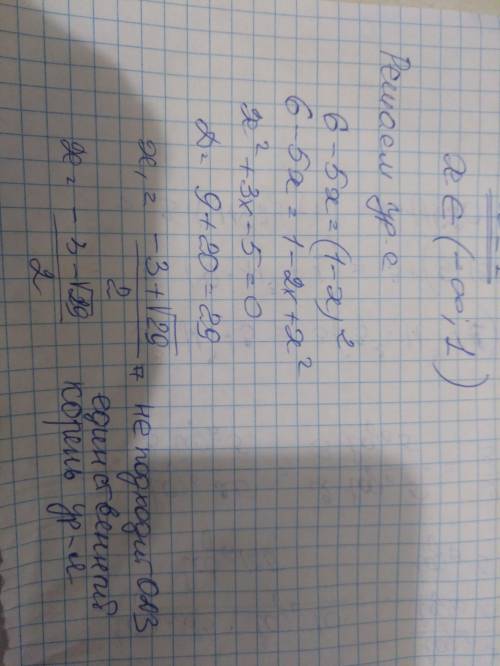 x ∈ (-∞; 1)
Решаем ур-е
6 - 5x = (1-x)²
6 - 5x = 1 - 2x + x²
x² + 3x - 5 = 0
D = 9 + 20 = 29
x₁ = (-3+√29)/2 не подходит ОДЗ
x = (-3-√29)/2 единственный
корень ур-я